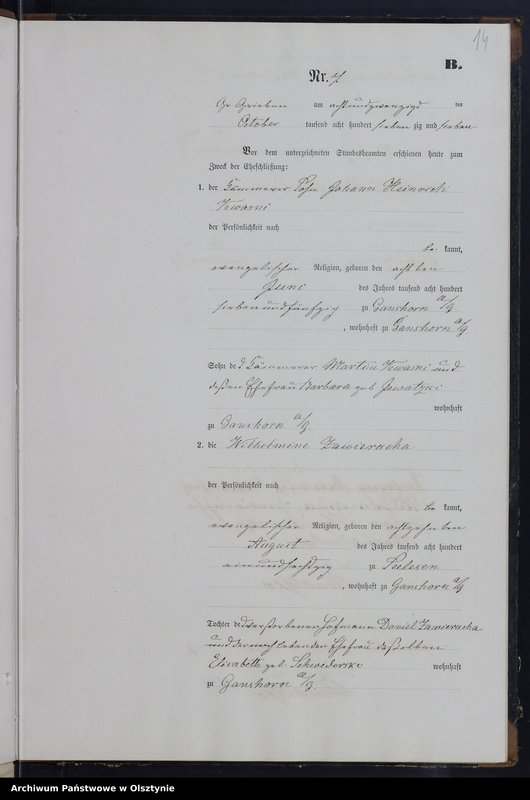 14
B.
Nr. 7
Gr. Grieben am achtundzwanzigsten
October tausend acht hundert siebenzig und sieben
Vor dem unterzeichneten Standesbeamten erschienen heute zum
Zweck der Eheschließung:
1. der Kämmerer Sohn Johann Heinrich
der Persönlichkeit nach
be kannt,
evangelischer Religion, geboren den achten
Juni des Jahres tausend acht hundert
siebenundfünfzig zu Ganshorn a/G
, wohnhaft zu Ganshorn a/G
Sohn des Kämmerer Martin und
deßen Ehefrau Barbara geb.
wohnhaft
zu Ganshorn a/G
2. die Wilhelmine Zawieracha
der Persönlichkeit nach
be kannt,
evangelischer Religion, geboren den achtzehnten
August des Jahres tausend acht hundert
einundsechszig zu Seelesen
, wohnhaft zu Ganshorn a/G
Tochter des verstorbenen Hofmann Daniel Zawieracha
und der noch lebenden Ehefrau deßelben
Elisabeth geb. wohnhaft
zu Ganshorn a/G
Archiwum Państwowe w Olsztynie